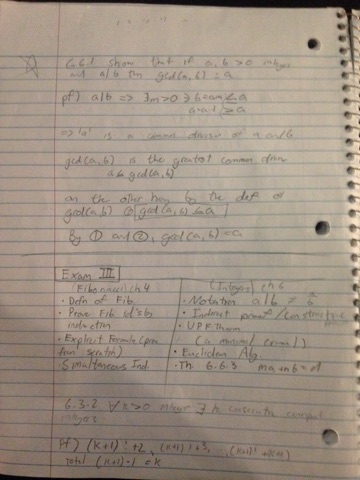 6.6.1 show that if a, b > 0 integ
and a|b then gcd(a, b) = a
pf) a|b => ∃ m>0 ∋ b=am
a=a·1
=> 'a' is a common divisor of a and b
gcd(a, b) is the greatest common divisor
a ≤ gcd(a, b)
on the other hand by the def of
gcd(a, b) ② gcd(a, b) ≤ a
By ① and ②, gcd(a, b) = a
Exam III
(Fibonacci) ch 4
· Defn of Fib.
· Prove Fib id's by
induction
· Explicit Formula (prove
from scratch)
· Simultaneous Ind.
(Integers) ch 6
· Notation a|b ≠ a/b
· Indirect proof / constructive
· UPF Thm
(a minimal criminal)
· Euclidean Alg.
· Th. 6.6.3 ma+nb=d
6.3.2 ∀ k>0 ∃ k consecutive
pf) (k+1)!+2, (k+1)!+3, ..., (k+1)!+(k+1)
Total (k+1)-1 = k